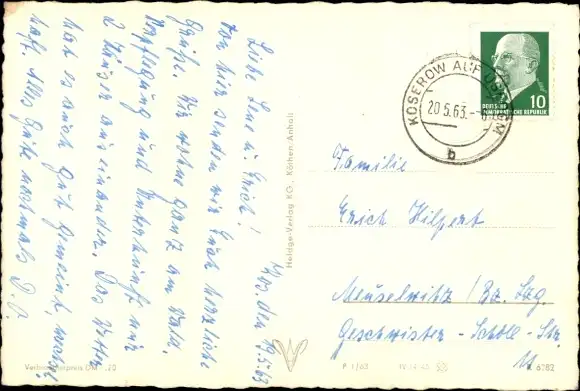 Kos. den 19.5.63
Liebe Lene u. Erich!
Von hier senden wir Euch herzliche
Grüße. Wir wohnen ganz am Wald.
Verpflegung und Unterkunft nur
2 Häuser auseinander. Das Wetter
hat es auch gut gemeint,
hoff. Alles Gute nochmals
KOSEROW AUF USEDOM
20.5.63.
b
DEUTSCHE
DEMOKRATISCHE REPUBLIK
10
Familie
Erich Hilpert
Meuselwitz / Bz. Lpg
Geschwister-Scholl-Str.
11
Heldge-Verlag KG., Köthen-Anhalt
Verbraucherpreis DM -,20
P 1/63
K 6782